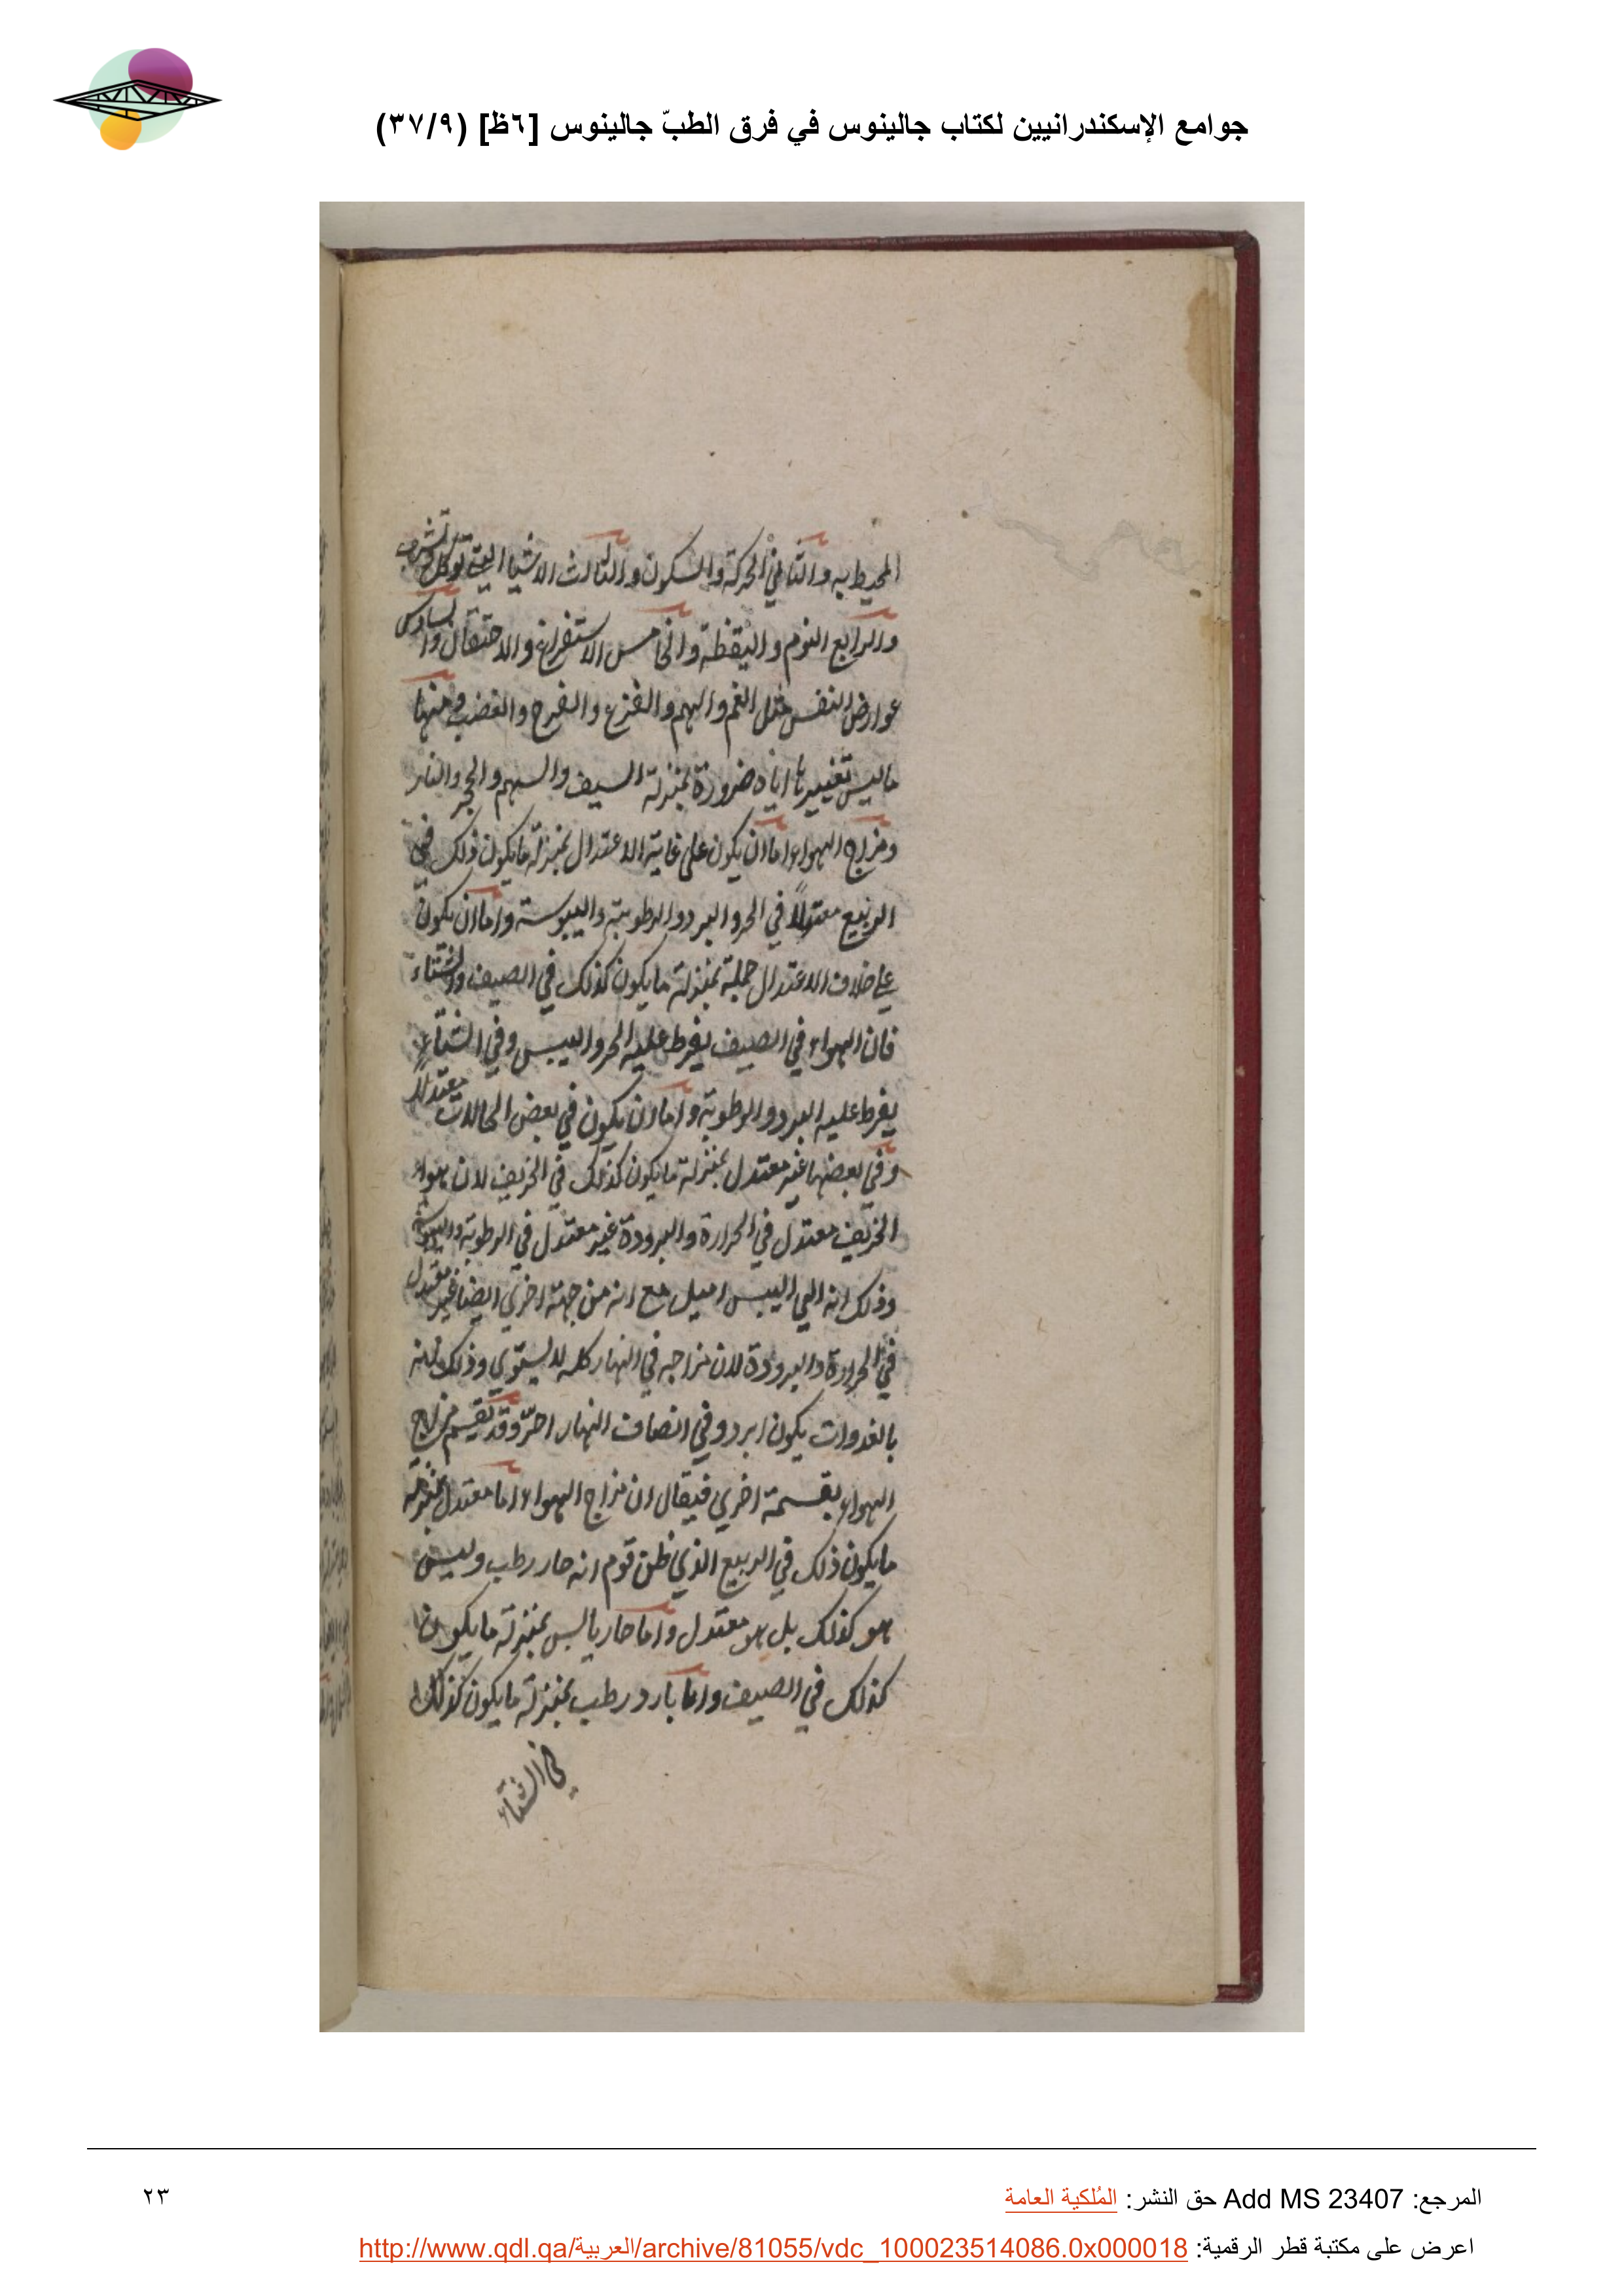 جوامع الإسكندرانيين لكتاب جالينوس في فرق الطبّ جالينوس [٦ظ] (٣٧/٩)
المحيط به والثاني الحركة والسكون والثالث الاشيا التي توكل وتشرب
والرابع النوم واليقظة والخامس الاستفراغ والاحتقان والسادس
عوارض النفس مثل الغم والهم والفزع والفرح والغضب ومنها
ماليس تغييرها اياه ضرورة بمنزلة السيف والسهم والحجر والنار
ومزاج الهواء اما ان يكون على غاية الاعتدال بمنزلة مايكون ذلك في
الربيع معتدلاً في الحر والبرد والرطوبة واليبوسة واما ان يكون
على خلاف الاعتدال جملة بمنزلة مايكون كذلك في الصيف والشتاء
فان الهواء في الصيف يفرط عليه الحر واليبس وفي الشتاء
يفرط عليه البرد والرطوبة واما ان يكون في بعض الحالات معتدلا
وفي بعضها غير معتدل بمنزلة مايكون كذلك في الخريف لان هواء
الخريف معتدل في الحرارة والبرودة غير معتدل في الرطوبة واليبوسة
وذلك انه الي اليبس اميل مع انه من جهة اخري ايضا غير معتدل
في الحرارة والبرودة لان مزاجه في النهار كله لا يستوي وذلك لانه
بالغدوات يكون ابرد وفي انصاف النهار احرّ وقد يقسم مزاج
الهواء بقسمة اخري فيقال ان مزاج الهواء اما معتدل بمنزلة
مايكون ذلك في الربيع الذي ظن قوم انه حار رطب وليس
هو كذلك بل هو معتدل واما حار يابس بمنزلة مايكون
كذلك في الصيف واما بارد رطب بمنزلة مايكون كذلك
في الشتاء
المرجع: Add MS 23407 حق النشر: المُلكية العامة
٢٣
اعرض على مكتبة قطر الرقمية: http://www.qdl.qa/العربية/archive/81055/vdc_100023514086.0x000018